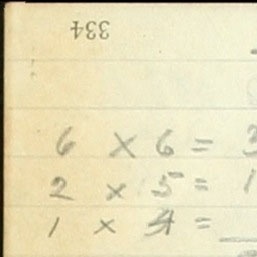 334
6 × 6 = 3
2 × 5 = 1
1 × 4 =